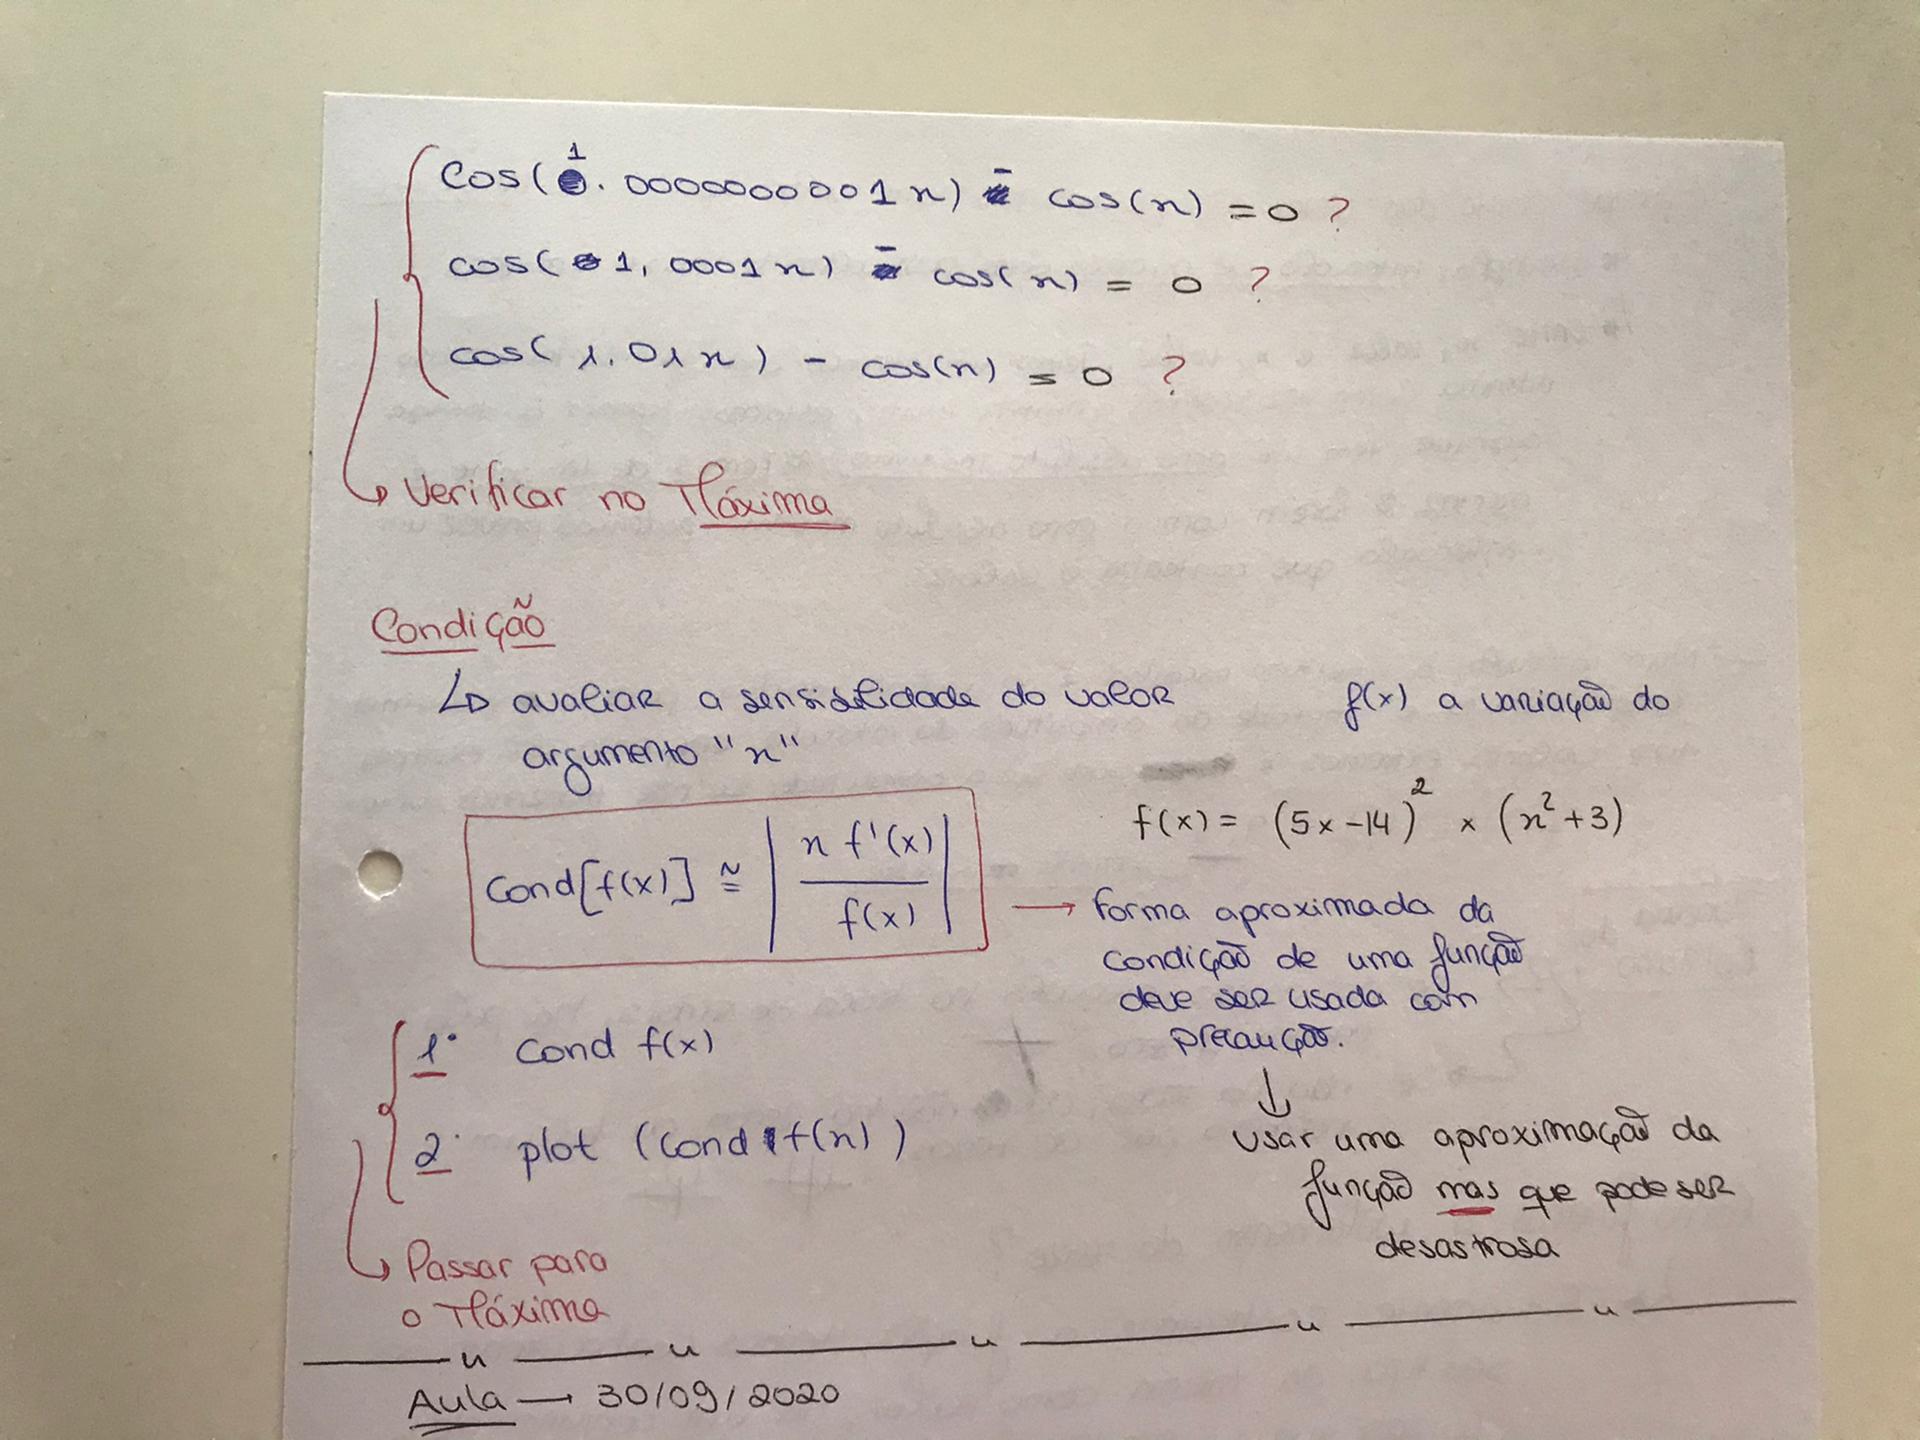 Cos(1.0000000001x) - cos(x) = 0 ?
cos(1,0001x) - cos(x) = 0 ?
cos(1.01x) - cos(x) = 0 ?
↳ Verificar no Máxima
Condição
↳ avaliar a sensibilidade do valor f(x) a variação do
argumento "x"
f(x) = (5x-14)² × (x²+3)
Cond[f(x)] ≅ | x f'(x) / f(x) |
→ forma aproximada da
condição de uma função
deve ser usada com
precaução.
↓
usar uma aproximação da
função mas que pode ser
desastrosa
1° Cond f(x)
2° plot (Cond f(x))
↳ Passar para
o Máxima
Aula → 30/09/2020